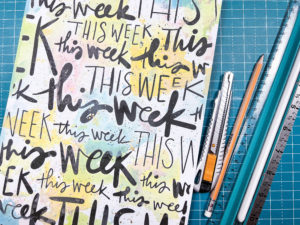 this week THIS
THIS WEEK This
K this week
THIS WEEK
this week
WEEK this week THIS W
this week this
EEK this week
this week this week
THIS